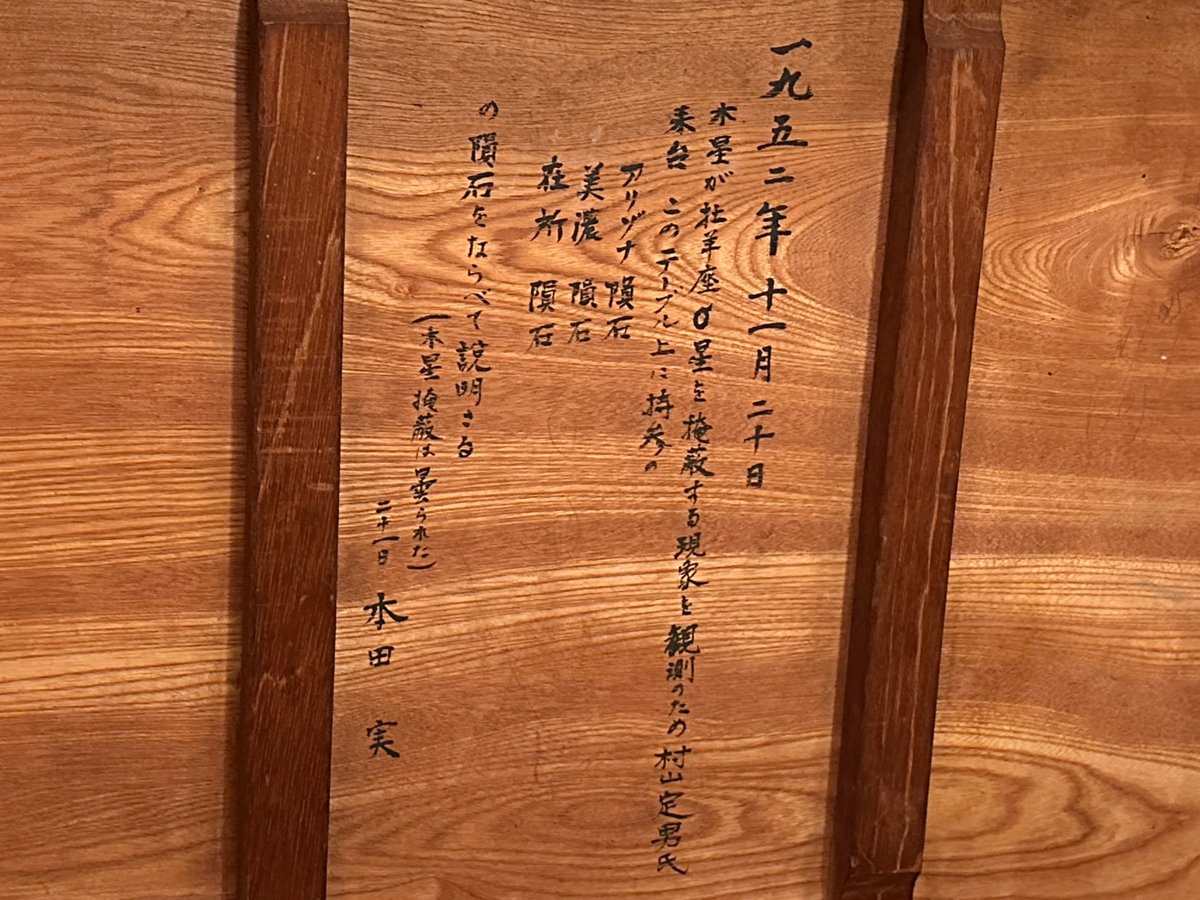 一九五二年十一月二十日
木星が牡羊座σ星を掩蔽する現象を観測のため村山定男氏
来台 このテーブル上に持参の
アリゾナ 隕石
美濃 隕石
在所 隕石
の隕石をならべて説明さる
(木星掩蔽は曇られた)
二十一日 本田 実